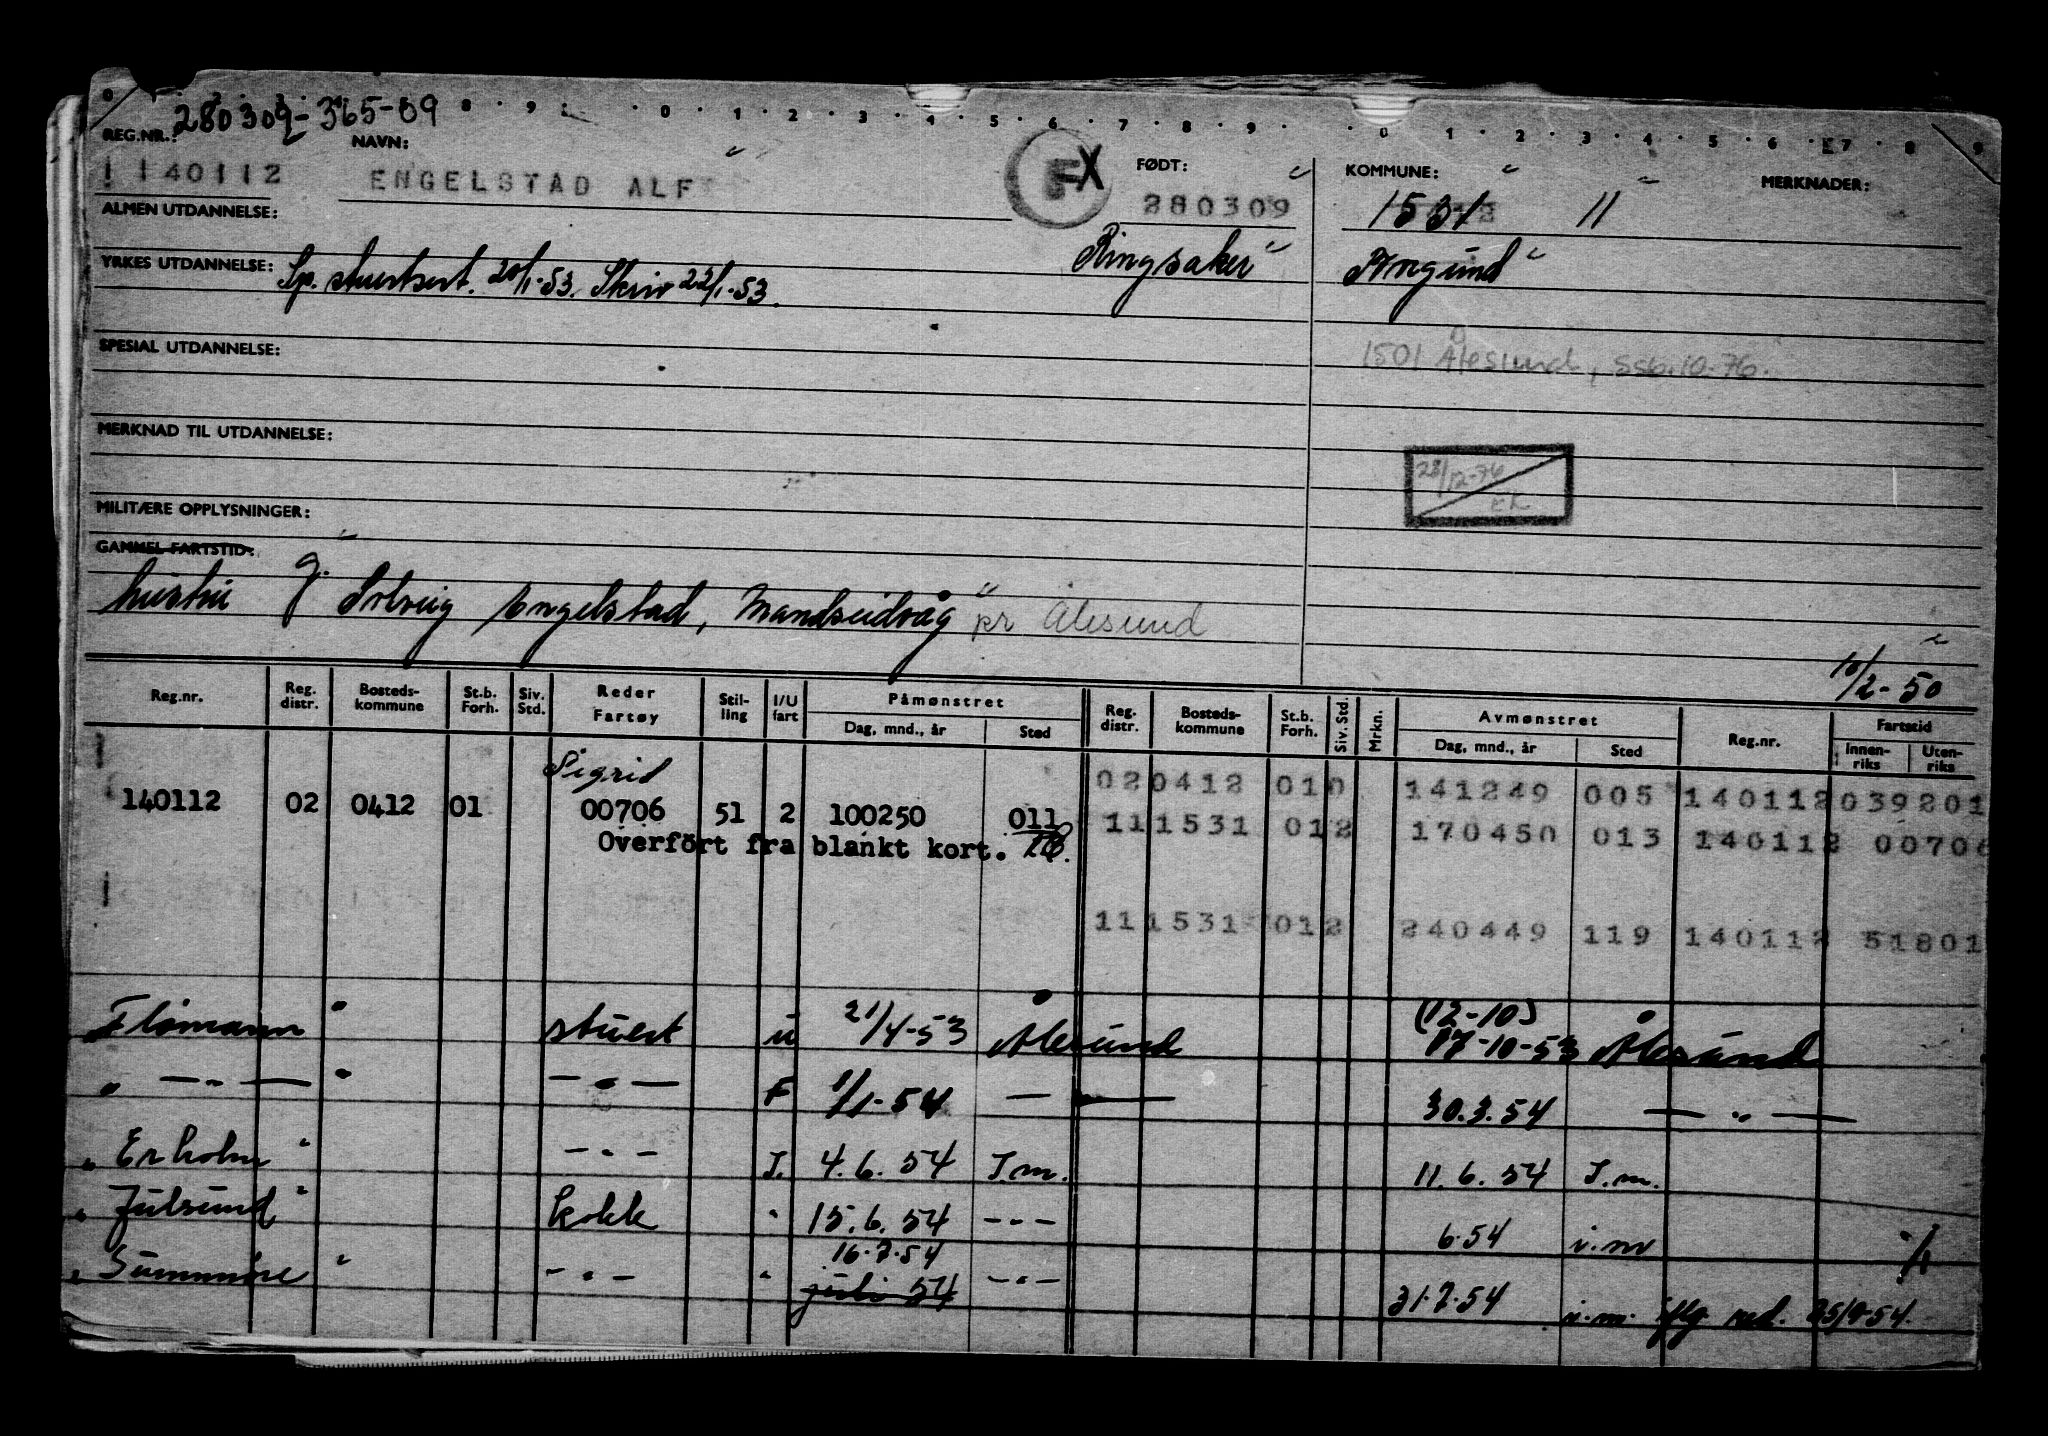 280309-365-09
REG.NR.: NAVN: FØDT: KOMMUNE: MERKNADER:
140112 ENGELSTAD ALF F X 280309 1531 11
ALMEN UTDANNELSE:
Ringsaker Borgund
YRKES UTDANNELSE: Sp. stuertsert. 20/1-53. Skriv 22/1-53.
SPESIAL UTDANNELSE:
1501 Ålesund, SSB.10-76.
MERKNAD TIL UTDANNELSE:
28/12-76
EK
MILITÆRE OPPLYSNINGER:
GAMMEL FARTSTID:
hustru g. Solveig Engelstad, Mandseidvåg pr Ålesund
10/2-50
Reg.nr. Reg. distr. Bosteds-kommune St.b. Forh. Siv. Std. Reder Fartøy Stil-ling I/U fart Påmønstret Dag, mnd., år Sted Reg. distr. Bosteds-kommune St.b. Forh. Siv. Std. Mrkn. Avmønstret Dag, mnd., år Sted Reg.nr. Fartstid Innen-riks Uten-riks
Sigrid 02 0412 010 141249 005 140112 039201
140112 02 0412 01 00706 51 2 100250 011 11 1531 012 170450 013 140112 00706
Overført fra blankt kort.
11 1531 012 240449 119 140112 51801
"Flømann" stuert u 21/4-53 Ålesund (12-10) 17-10-53 Ålesund
" — " — " — " — F 1/1-54 — " — 30.3.54 — " —
"Erholm" — " — I. 4.6.54 I.m. 11.6.54 I.m.
"Julsund" kokk " 15.6.54 — " — 6.54 i.m
16.7.54
"Sunnmøre" — " — " juli 54 — " — 31.7.54 i.m. iflg red. 25/9-54.